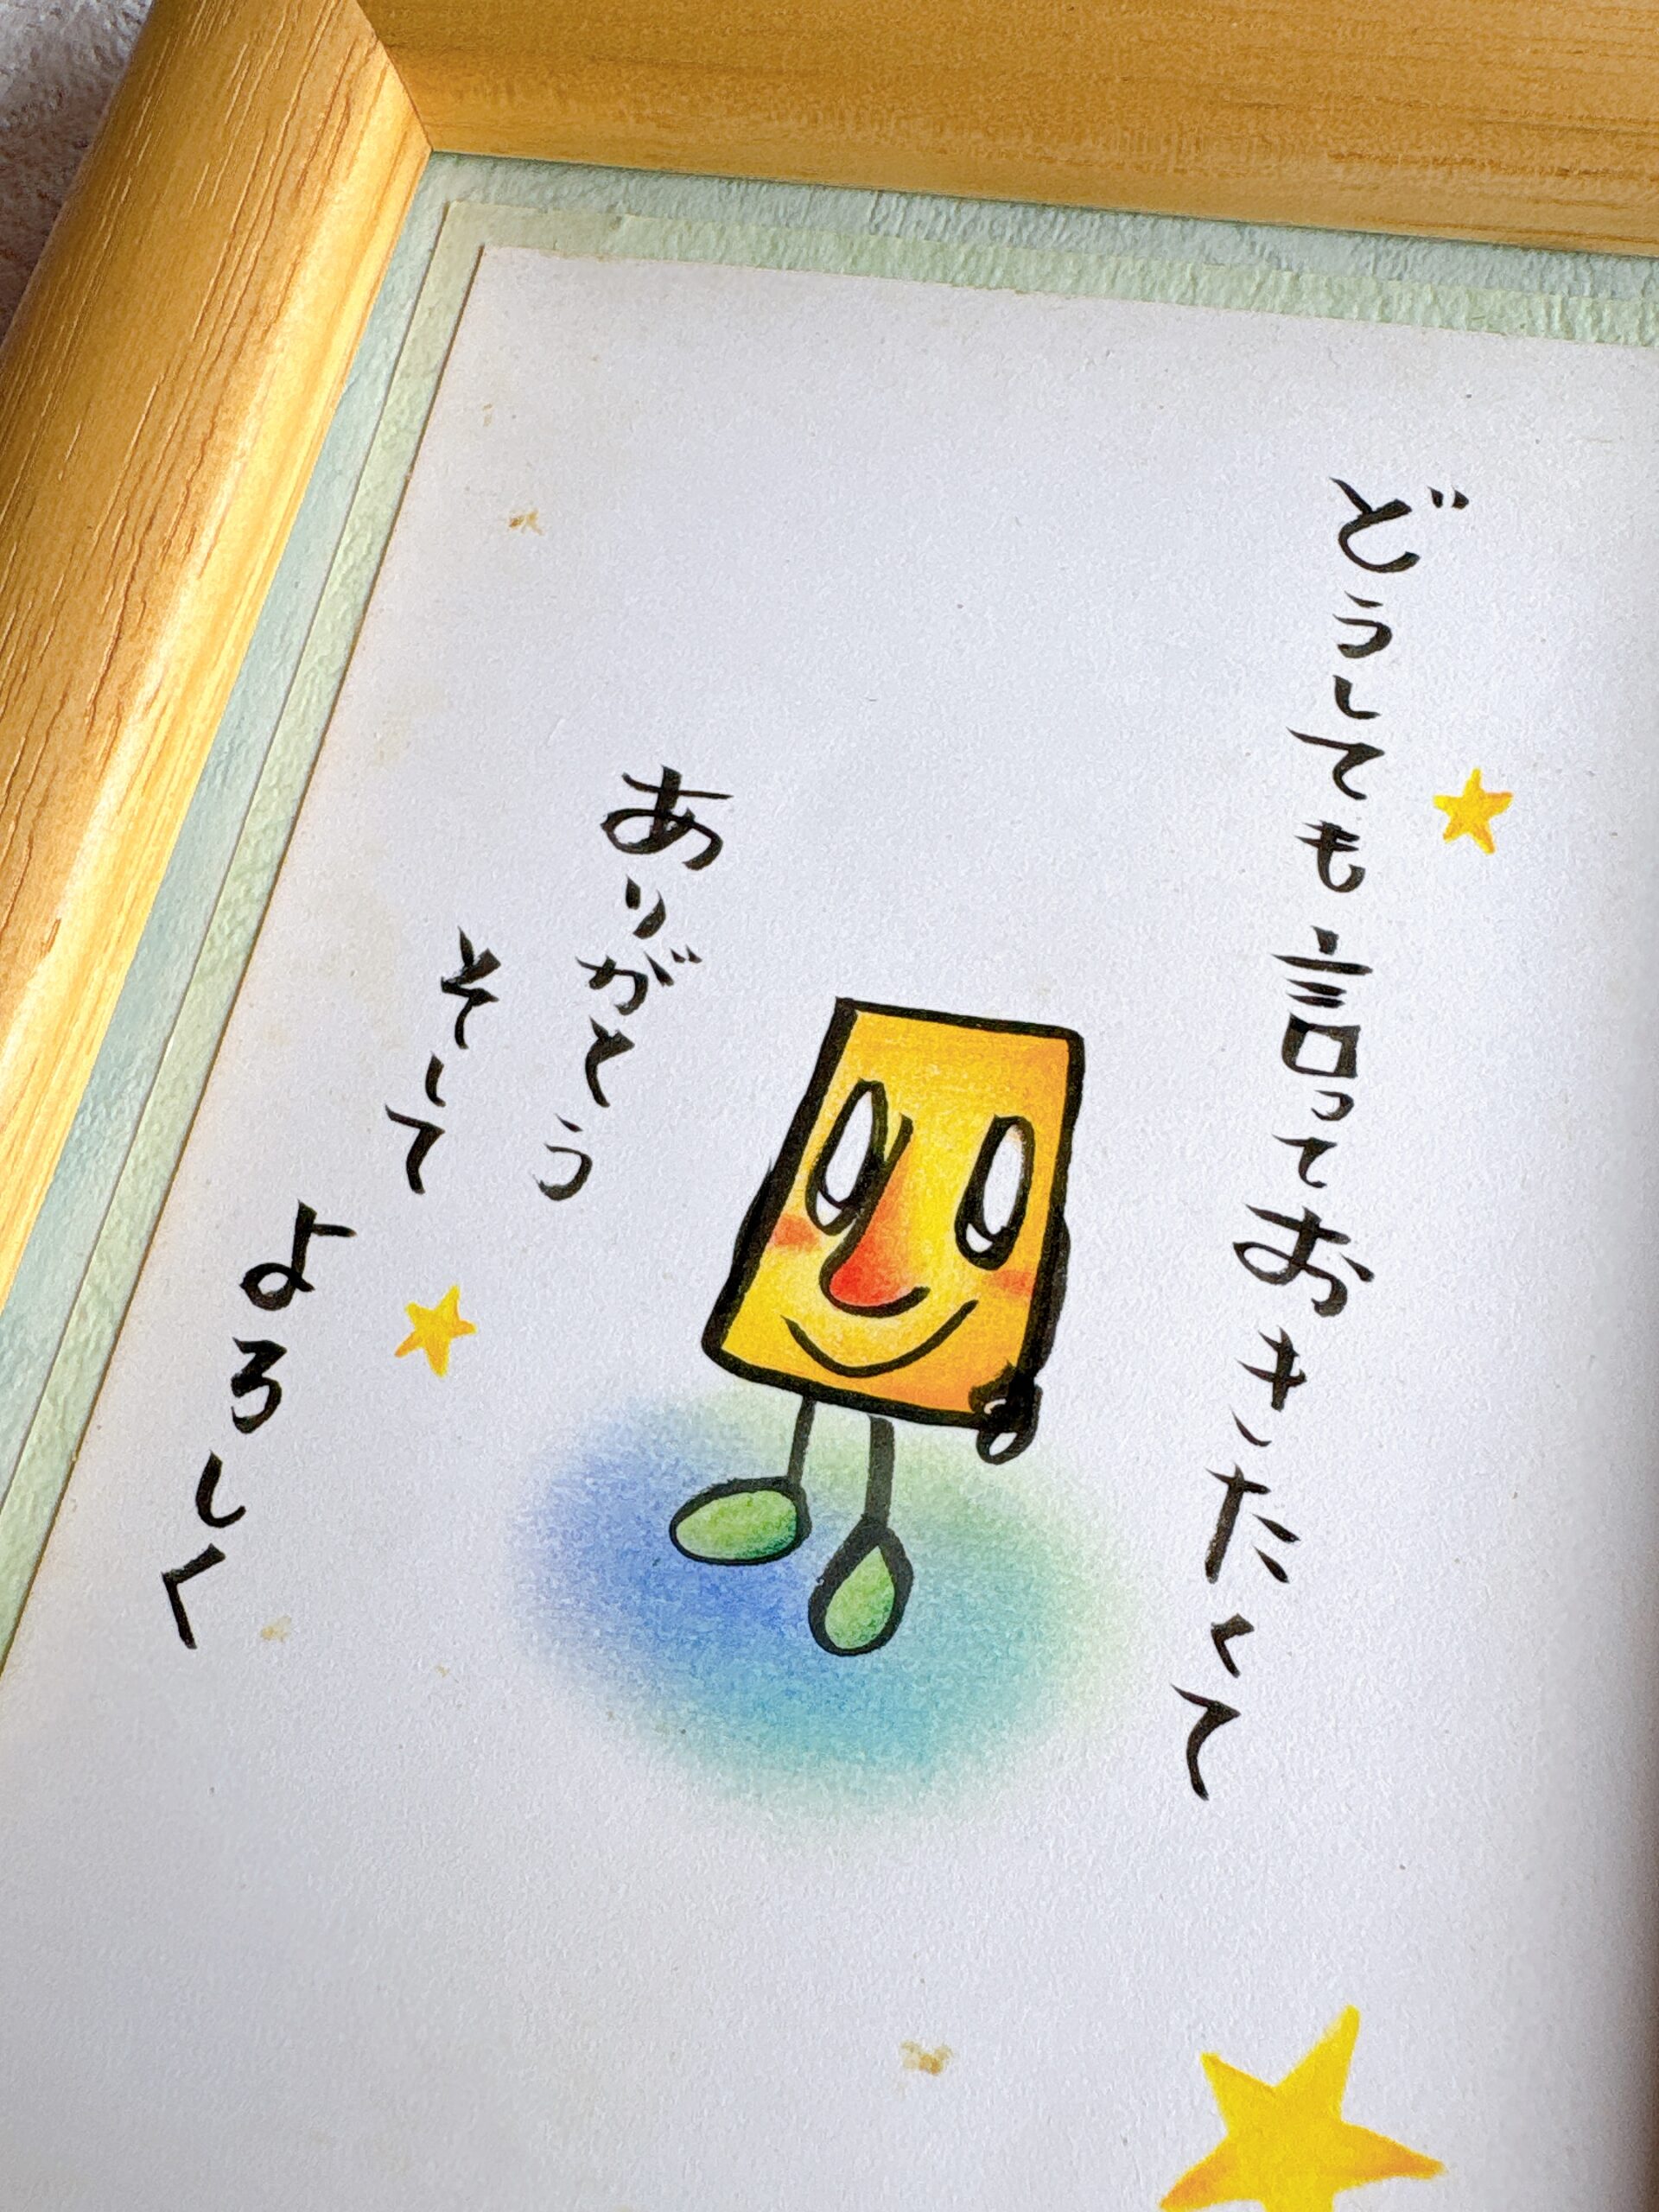 どうしても言っておきたくて
ありがとう
そして
よろしく